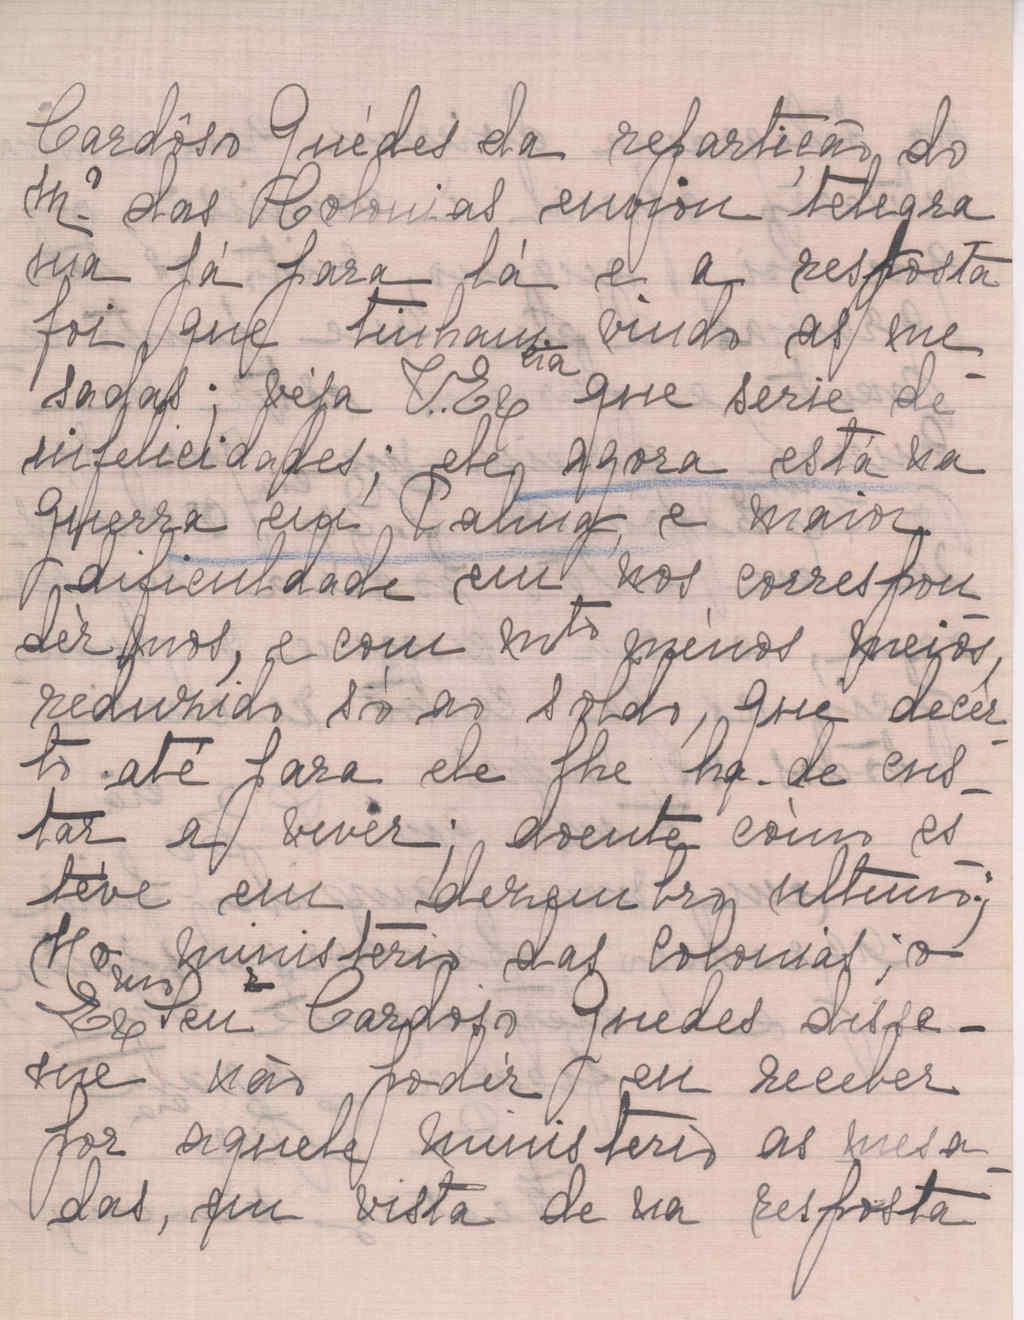 Cardôso Guédes da repartição do
M.º das Colonias enviou telegra
ma já para lá e a resposta
foi que tinham vindo as me
sadas; vêja V. Ex.cia que serie de
infelicidades; ele agora está na
guerra em e maior
dificuldade em nos correspon
dêrmos, e com mto ménos meiõs,
reduzido só ao soldo, que decer
to até para ele lhe ha-de cus
tar a viver; doente cômo es
têve em dezembro ultimo;
No ministerio das Colonias; o
Exmo Senr Cardoso Guedes disse-
me não podêr eu receber
por aquele ministerio as mesa
das, em vista de na resposta